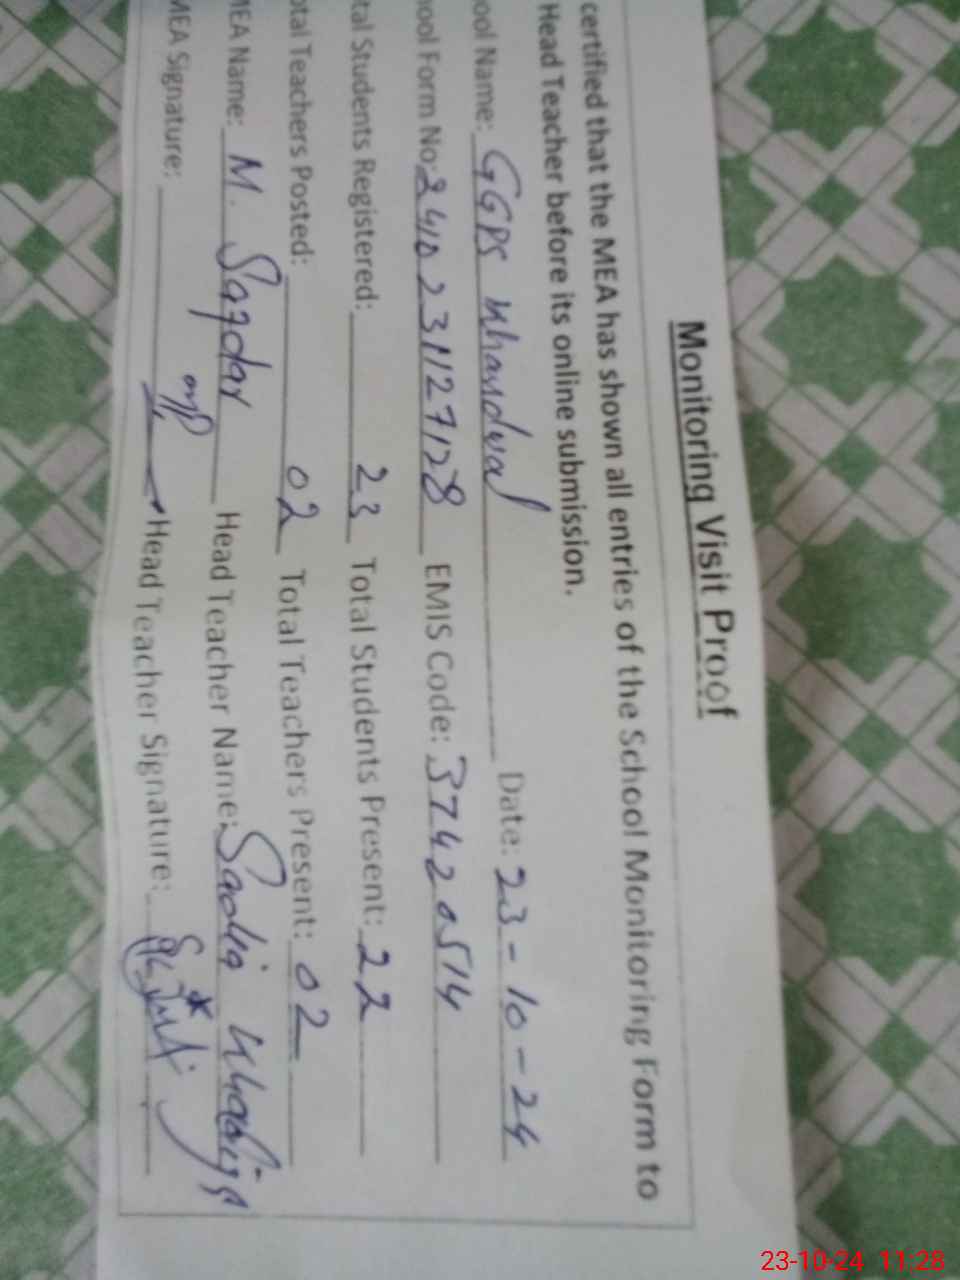 Monitoring Visit Proof
certified that the MEA has shown all entries of the School Monitoring Form to
Head Teacher before its online submission.
ool Name: GGPS Khandwal Date: 23-10-24
ool Form No: 2410231127128 EMIS Code: 37420514
tal Students Registered: 23 Total Students Present: 22
otal Teachers Posted: 02 Total Teachers Present: 02
MEA Name: M. Safdar Head Teacher Name: Sadia Khaliqa
MEA Signature: Head Teacher Signature:
23-10-24 11:28